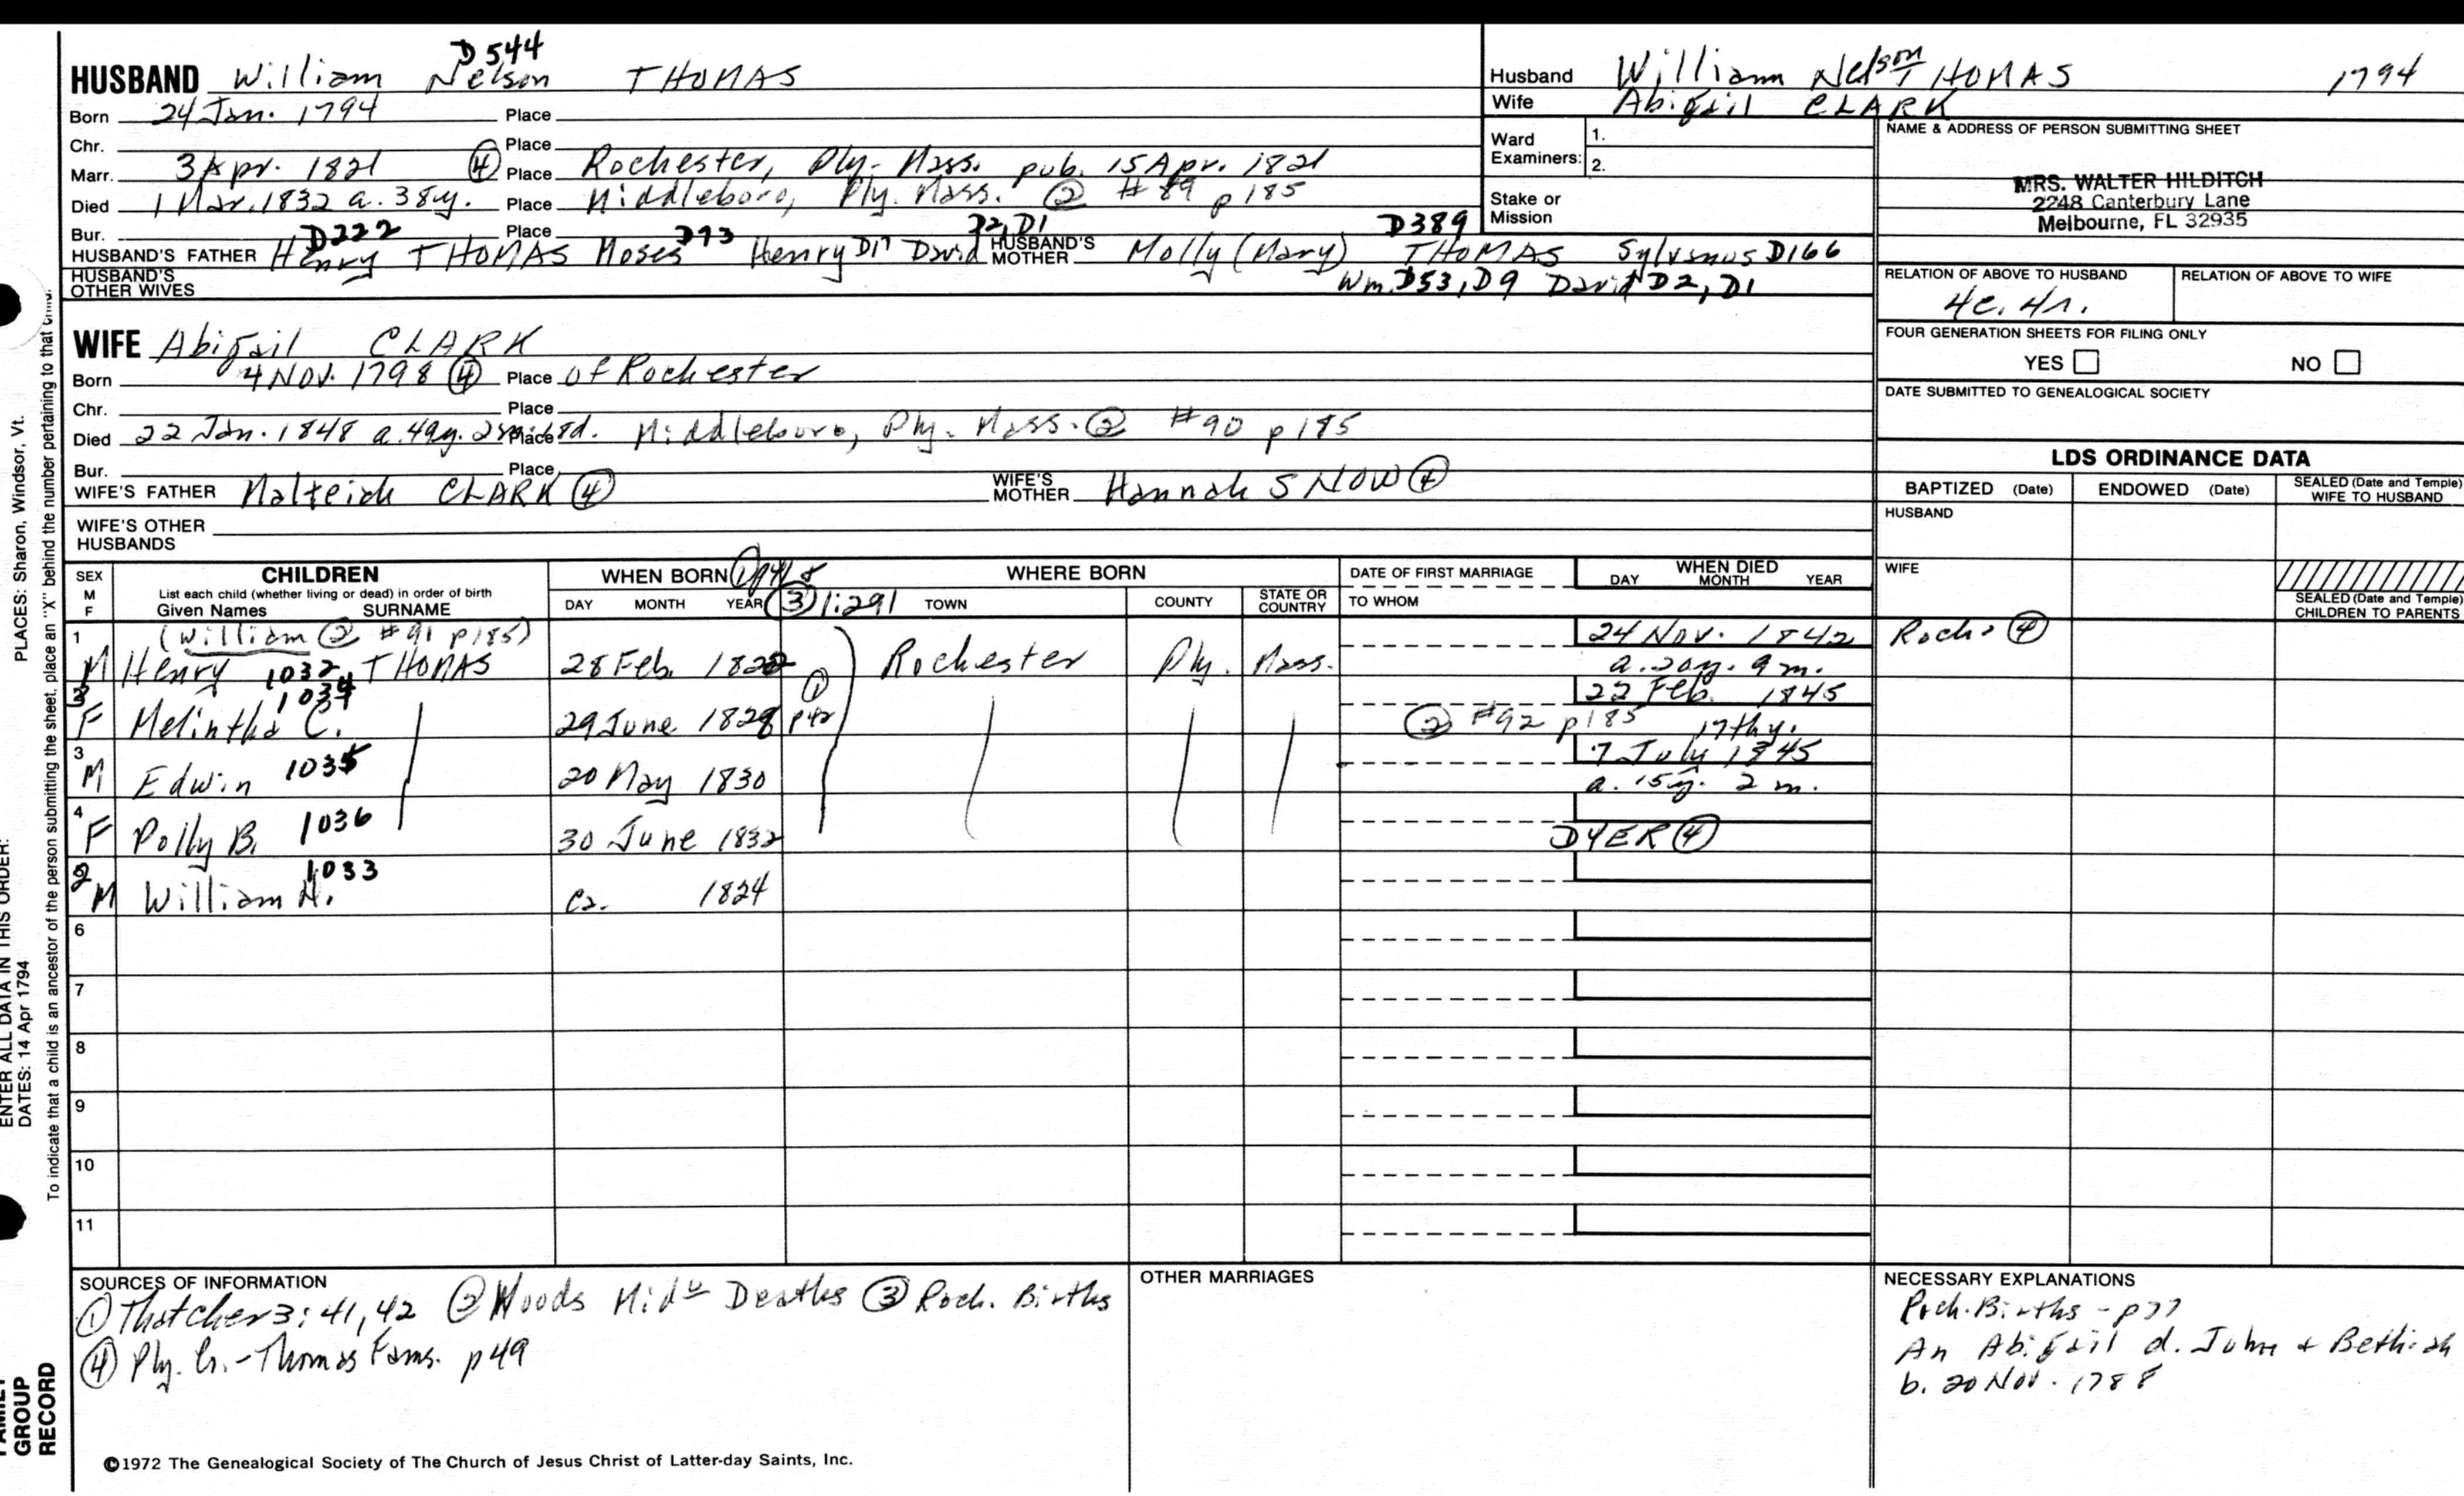 D544
HUSBAND William Nelson THOMAS
Born 24 Jan. 1794 Place
Chr. Place
Marr. 3 Apr. 1821 ④ Place Rochester, Ply. Mass. pub. 15 Apr. 1821
Died 1 Mar. 1832 a. 38y. Place Middleboro, Ply. Mass. ② #89 p185
Bur. Place
D222 D73 D2, D1 D389
HUSBAND'S FATHER Henry THOMAS Moses Henry D17 David HUSBAND'S MOTHER Molly (Mary) THOMAS Sylvanus D166
HUSBAND'S OTHER WIVES Wm. D53, D9 David D2, D1
WIFE Abigail CLARK
Born 4 Nov. 1798 ④ Place of Rochester
Chr. Place
Died 22 Jan. 1848 a. 49y. 2m. 18d. Place Middleboro, Ply. Mass. ② #90 p185
Bur. Place
WIFE'S FATHER CLARK ④ WIFE'S MOTHER Hannah SNOW ④
WIFE'S OTHER HUSBANDS
Husband William Nelson THOMAS 1794
Wife Abigail CLARK
Ward Examiners: 1.
2.
Stake or Mission
NAME & ADDRESS OF PERSON SUBMITTING SHEET
MRS. WALTER HILDITCH
2248 Canterbury Lane
Melbourne, FL 32935
RELATION OF ABOVE TO HUSBAND RELATION OF ABOVE TO WIFE
4c. 4r.
FOUR GENERATION SHEETS FOR FILING ONLY
YES NO
DATE SUBMITTED TO GENEALOGICAL SOCIETY
LDS ORDINANCE DATA
BAPTIZED (Date) ENDOWED (Date) SEALED (Date and Temple) WIFE TO HUSBAND
HUSBAND
WIFE
SEALED (Date and Temple) CHILDREN TO PARENTS
SEX M F CHILDREN
List each child (whether living or dead) in order of birth
Given Names SURNAME
WHEN BORN ①
DAY MONTH YEAR ③ 1:291
WHERE BORN
TOWN COUNTY STATE OR COUNTRY
DATE OF FIRST MARRIAGE
TO WHOM
WHEN DIED
DAY MONTH YEAR
1 (William ② #91 p185) 24 Nov. 1842 Roch. ④
M Henry 1032 THOMAS 28 Feb. 1822 Rochester Ply. Mass. a. 20y. 9m.
2 1034 ① 22 Feb. 1845
F Melintha C. 29 June 1828 p42 ② #92 p185 17thy.
3 7 July 1845
M Edwin 1035 20 May 1830 a. 15y. 2m.
4
F Polly B. 1036 30 June 1832 DYER ④
1033
M William N. ca. 1824
6
7
8
9
10
11
SOURCES OF INFORMATION
① Thatcher 3: 41, 42 ② Woods Deaths ③ Roch. Births
④ Ply. Thomas Fams. p49
OTHER MARRIAGES
NECESSARY EXPLANATIONS
Roch. Births - p77
An Abigail d. John + Bethiah
b. 20 Nov. 1788
©1972 The Genealogical Society of The Church of Jesus Christ of Latter-day Saints, Inc.
PLACES: Sharon, Windsor, Vt.
ENTER ALL DATA IN THIS ORDER:
DATES: 14 Apr 1794
To indicate that a child is an ancestor of the person submitting the sheet, place an "X" behind the number pertaining to that child.
FAMILY GROUP RECORD